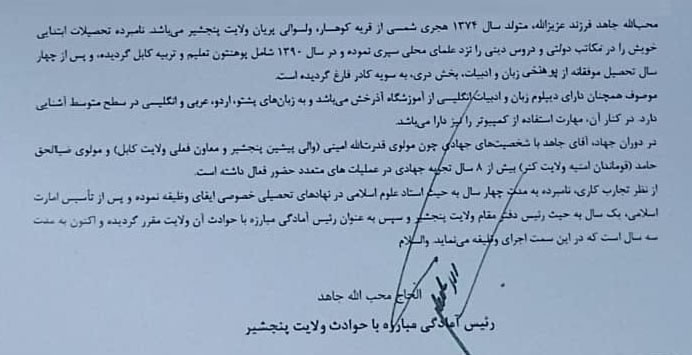 محب‌الله جاهد فرزند عزیزالله، متولد سال ۱۳۷۴ هجری شمسی از قریه کوهسار، ولسوالی پریان ولایت پنجشیر می‌باشد. نامبرده تحصیلات ابتدایی
خویش را در مکاتب دولتی و دروس دینی را نزد علمای محلی سپری نموده و در سال ۱۳۹۰ شامل پوهنتون تعلیم و تربیه کابل گردیده، و پس از چهار
سال تحصیل موفقانه از پوهنځی زبان و ادبیات، بخش دری، به سویه کادر فارغ گردیده است.
موصوف همچنان دارای دیپلوم زبان و ادبیات انگلیسی از آموزشگاه آذرخش می‌باشد و به زبان‌های پشتو، اردو، عربی و انگلیسی در سطح متوسط آشنایی
دارد. در کنار آن، مهارت استفاده از کمپیوتر را نیز دارا می‌باشد.
در دوران جهاد، آقای جاهد با شخصیت‌های جهادی چون مولوی قدرت‌الله امینی (والی پیشین پنجشیر و معاون فعلی ولایت کابل) و مولوی ضیاالحق
حامد (قوماندان امنیه ولایت کنر) بیش از ۸ سال تجربه جهادی در عملیات های متعدد حضور فعال داشته است.
از نظر تجارب کاری، نامبرده به مدت چهار سال به حیث استاد علوم اسلامی در نهادهای تحصیلی خصوصی ایفای وظیفه نموده و پس از تأسیس امارت
اسلامی، یک سال به حیث رئیس دفتر مقام ولایت پنجشیر و سپس به عنوان رئیس آمادگی مبارزه با حوادث آن ولایت مقرر گردیده و اکنون به مدت
سه سال است که در این سمت اجرای وظیفه می‌نماید. والسلام
الحاج محب الله جاهد
رئیس آمادگی مبارزه با حوادث ولایت پنجشیر